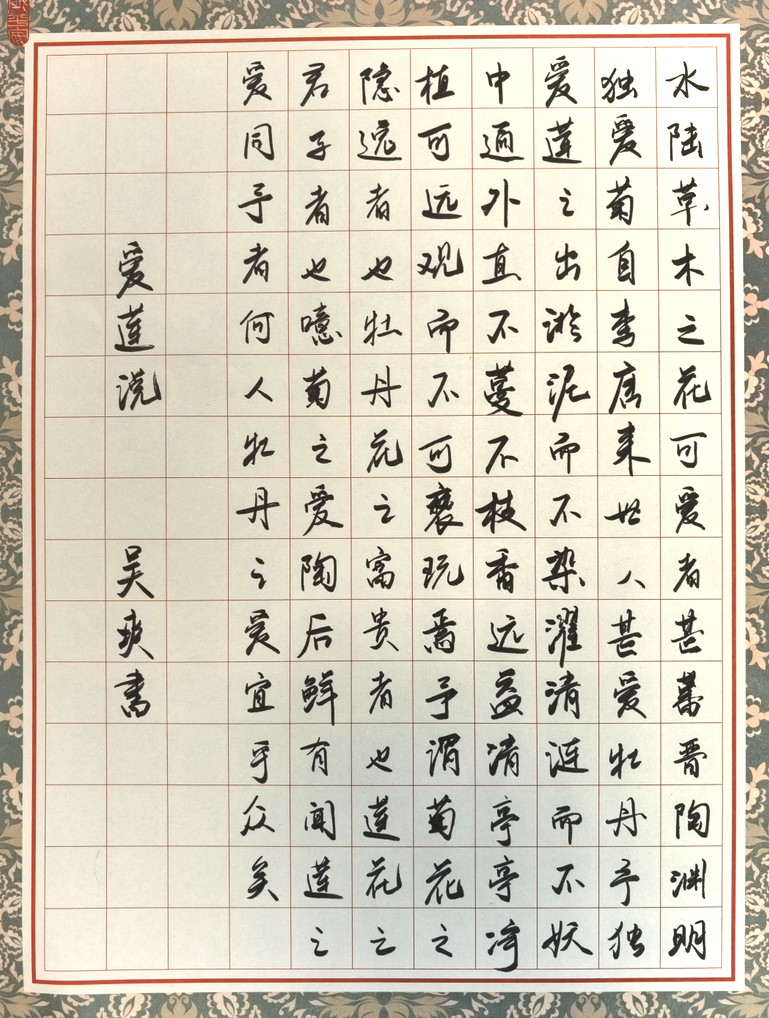 水陆草木之花可爱者甚蕃晋陶渊明
独爱菊自李唐来世人甚爱牡丹予独
爱莲之出淤泥而不染濯清涟而不妖
中通外直不蔓不枝香远益清亭亭净
植可远观而不可亵玩焉予谓菊花之
隐逸者也牡丹花之富贵者也莲花之
君子者也噫菊之爱陶后鲜有闻莲之
爱同予者何人牡丹之爱宜乎众矣
爱莲说 吴爽书